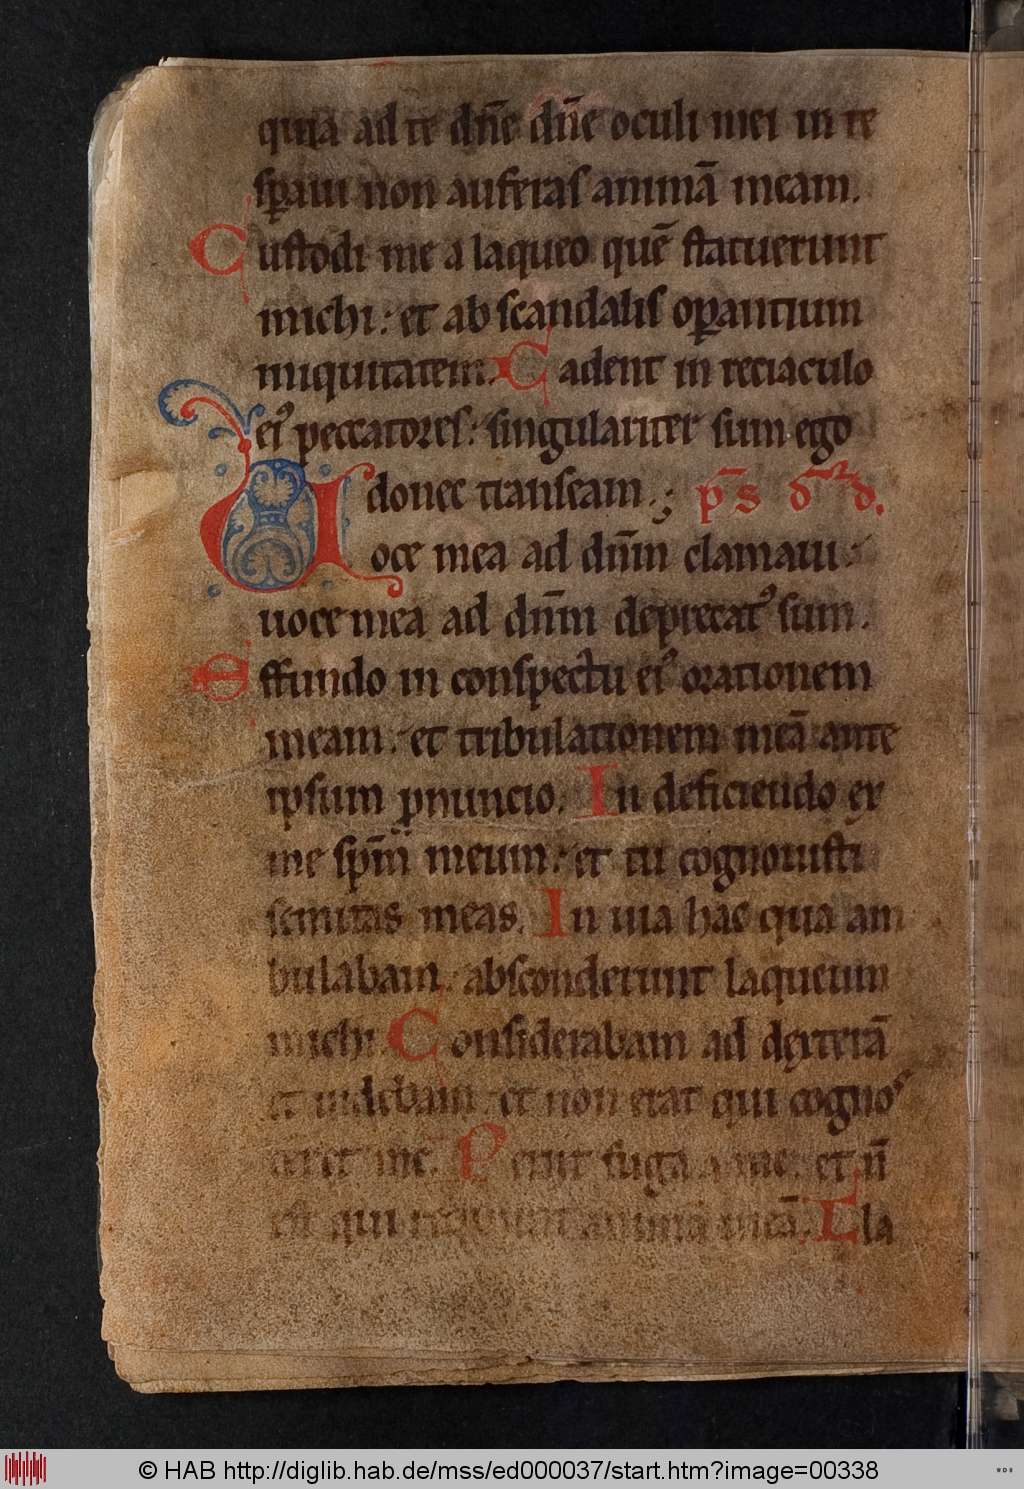 quia ad te dn̄e dn̄e oculi mei in te
sꝑaui non auferas animā meam.
Custodi me a laqueo quē statuerunt
michi: et ab scandalis oꝑantium
iniquitatem. Cadent in reciaculo
eiꝰ peccatores: singulariter sum ego
donec transeam.; p̄s d̄d.
Uoce mea ad dn̄m clamaui:
uoce mea ad dn̄m deprecatꝰ sum.
Effundo in conspectu eiꝰ orationem
meam: et tribulationem meā ante
ipsum ꝓnuncio. In deficiendo ex
me sp̄m meum: et tu cognouisti
semitas meas. In uia hac qua am
bulabam: absconderunt laqueum
michi. Considerabam ad dexterā
et uidebam: et non erat qui cognos
ceret me. Periit fuga a me: et n̄
est qui requirat animā meā. Cla
© HAB http://diglib.hab.de/mss/ed000037/start.htm?image=00338